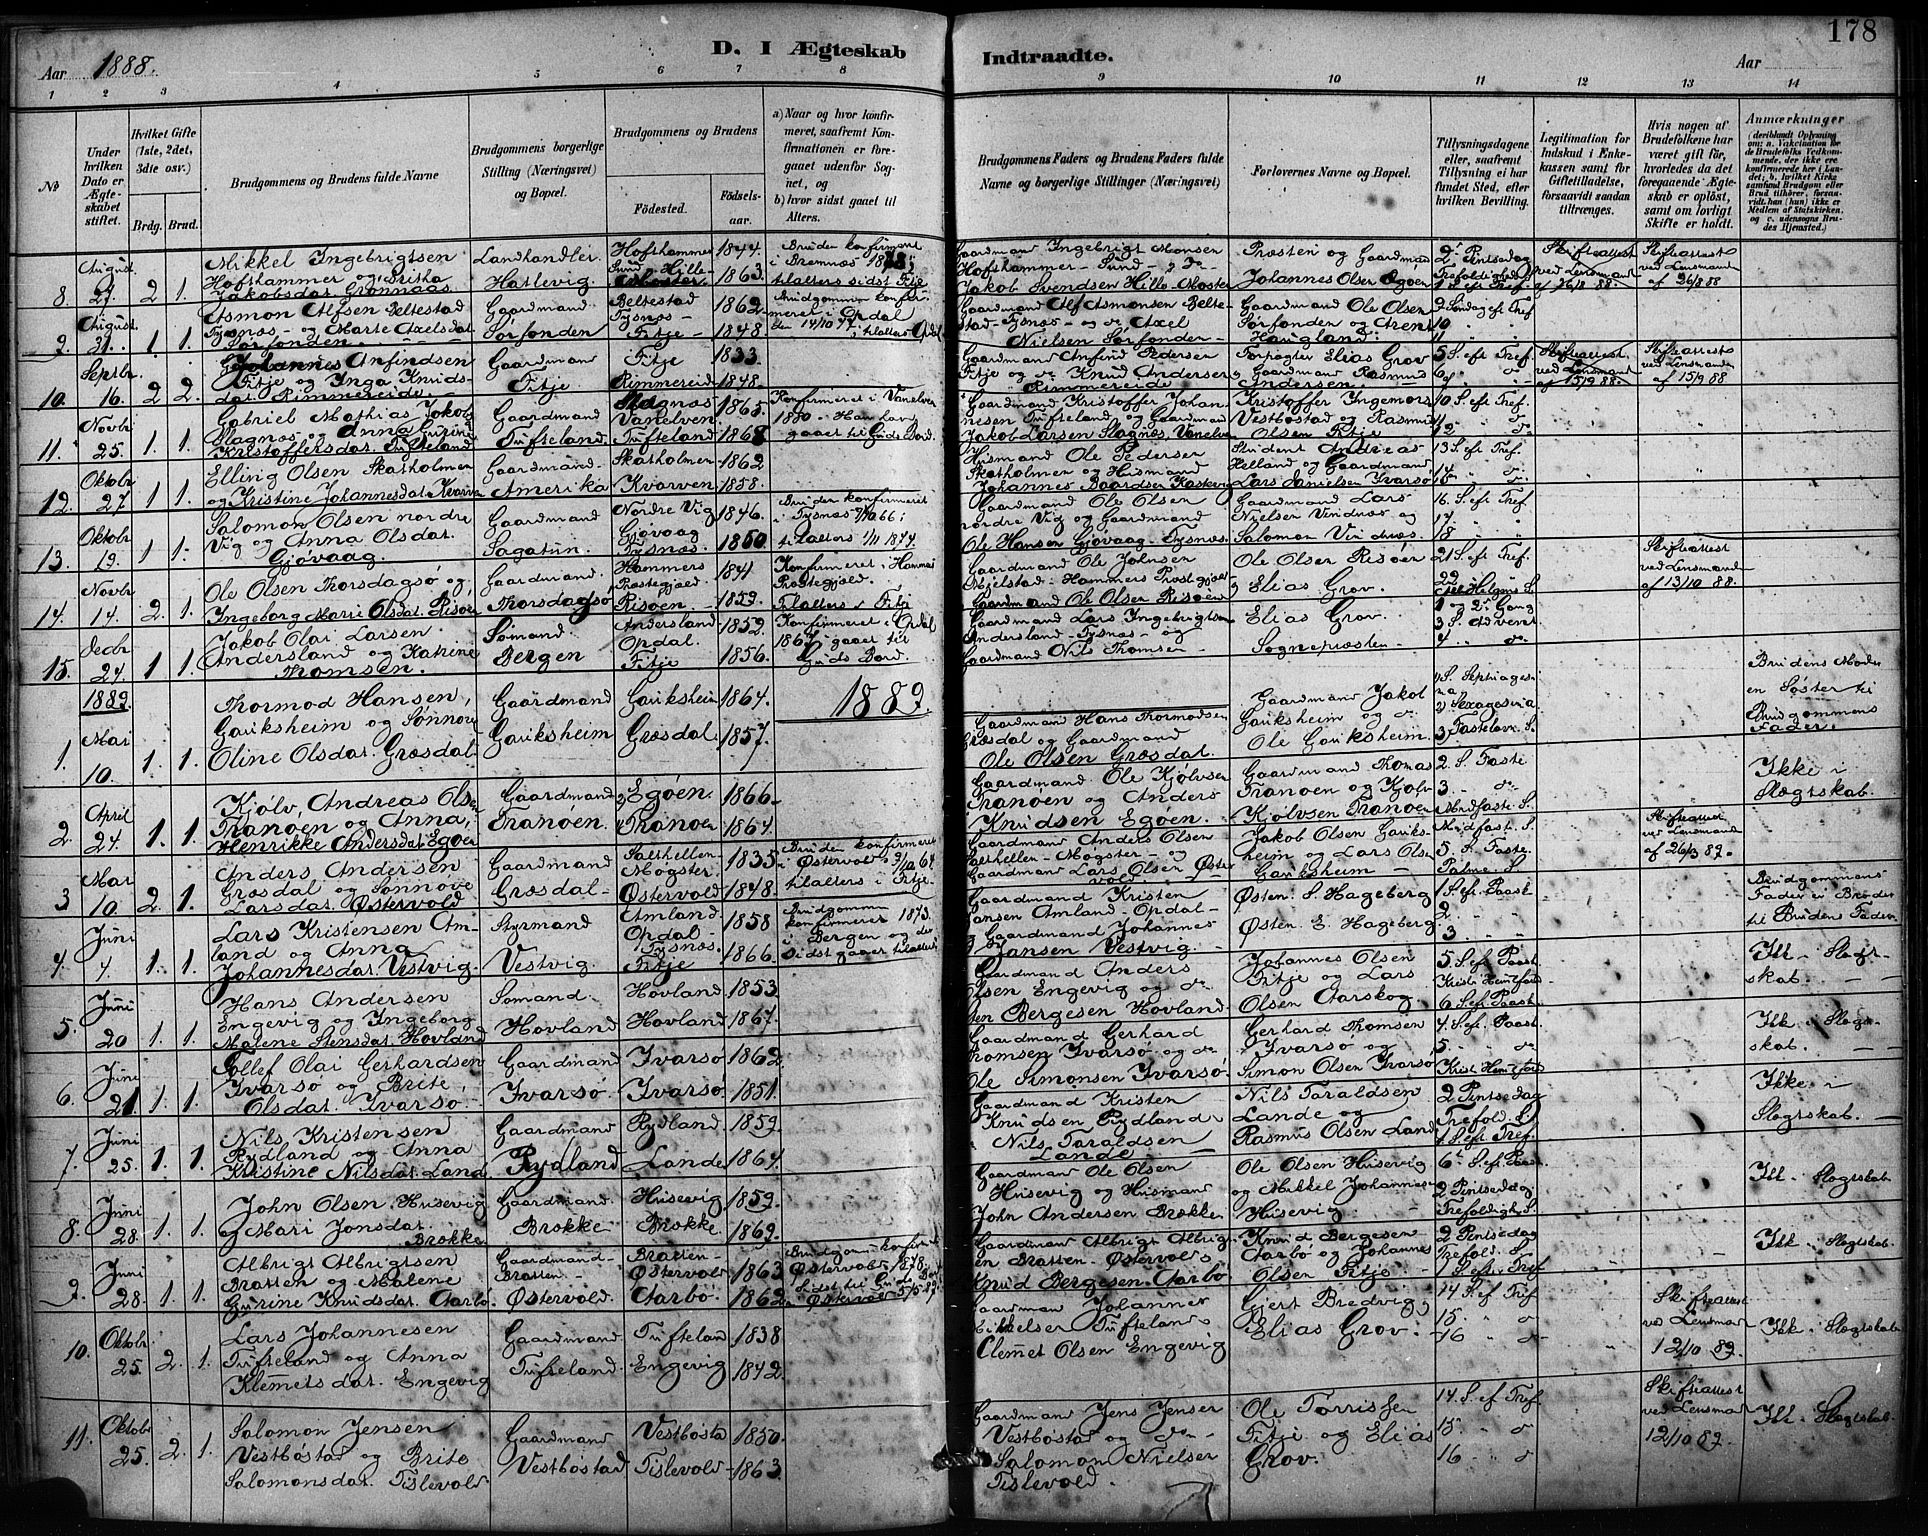 178
Aar 1888.
D. I Ægteskab Indtraadte.
Aar
1 2 3 4 5 6 7 8 9 10 11 12 13 14
No
Under hvilken Dato er Ægteskabet stiftet.
Hvilket Gifte (1ste, 2det, 3die osv.)
Brdg. Brud.
Brudgommens og Brudens fulde Navne
Brudgommens borgerlige Stilling (Næringsvei) og Bopæl.
Brudgommens og Brudens
Fødested. Fødselsaar.
a) Naar og hvor konfirmeret, saafremt Konfirmationen er foregaaet udenfor Sognet, og
b) hvor sidst gaaet til Alters.
Brudgommens Faders og Brudens Faders fulde Navne og borgerlige Stillinger (Næringsvei)
Forlovernes Navne og Bopæl.
Tillysningsdagene eller, saafremt Tillysning ei har fundet Sted, efter hvilken Bevilling.
Legitimation for Indskud i Enkekassen samt for Giftetilladelse, forsaavidt saadan tiltrænges.
Hvis nogen af Brudefolkene har været gift før, hvorledes da det foregaaende Ægteskab er opløst, samt om lovligt Skifte er holdt.
Anmærkninger
(deriblandt Oplysning om: a. Vakcination for de Brudefolks Vedkommende, der ikke ere konfirmerede her i Landet; b. hvilket Kirkesamfund Brudgom eller Brud tilhører, forsaavidt han (hun) ikke er Medlem af Statskirken, og c. udensogns Brudes Hjemsted.)
8. August 27. 2 1.
Mikkel Ingebrigtsen
Hofshammer og Britha
Jakobsdat. Grønnaas
Landhandler
Hatlevig.
Hofshammer Sund 1844.
Hille Moster 1863.
Bruden konfirmeret
i Bremnes 1878;
tilalters sidst Fitje
Gaardmand Ingebrigt Monsen
Hofshammer Sund og do
Jakob Svendsen Hille Moster
Præsten og Gaardmand
Johannes Olsen Ægøen
2. Pintsedag
Trefoldighedss.
1 S. eft. Tref.
Skifteattest
ved Lensmand
af 26/8 88.
Skifteattest
ved Lensmand
af 26/8 88
9. August 31. 1 1.
Asmon Alfsen Beltestad
Tysnæs og Marte Axelsdat
Sørfonden
Gaardmand
Sørfonden
Beltestad Tysnæs 1862.
Fitje 1848.
Brudgommen konfirmeret i Opdal
den 14/10 77, tilalters Opdal
Gaardmand Alf Asmonsen Beltestad
Tysnæs og do Axel
Nielsen Sørfonden
Gaardmand Ole Olsen
Sørfonden og Arent
Haugland.
9 Søndag eft Tref
10
11
10. Septbr 16. 2 2.
Johannes Anfindsen
Fitje og Inga Knudsdat Rimmereide
Gaardmand
Fitje
Fitje 1833.
Rimmereid 1848.
Gaardmand Anfind Pedersen
Fitje og do Knud Andersen
Rimmereide
Forpagter Elias Grov
og Gaardmand Rasmus
Andersen
5 S. eft Tref.
6
9
Skifteattest
ved Lensmand
af 15/9 88.
Skifteattest
ved Lensmand
af 15/9 88
11. Novbr 25. 1 1.
Gabriel Mathias Jakobs
Slagnæs og Anna Gurine
Kristoffersdat Tufteland
Gaardmand
Tufteland
Slagnæs Vanelven 1865.
Tufteland 1868
Konfirmeret i Vanelven
1880. Han har
gaaet til Guds Bord.
Gaardmand Kristoffer Johannesen
Tufteland og Gaardmand
Jakob Larsen Slagnæs, Vanelven
Kristoffer Ingemors
Vestbøstad og Rasmus
Olsen Fitje
10 S. eft Tref.
11
12
12. Oktobr 27. 1 1.
Elling Olsen Skatholmen
og Kristine Johannesdat Kvarven
Gaardmand.
Amerika
Skatholmen 1862
Kvarven 1858.
Husmand Ole Pedersen
Skatholmen og Husmand
Johannes Baardsen
Student Andreas
Helland og Gaardmand
Lars Danielsen Ivarsø
13 S. eft Tref.
14
15
13. Oktobr 19. 1 1.
Salomon Olsen nordre
Vig og Anna Olsdat.
Gjøvaag.
Gaardmand
Sagatun.
Nordre Vig 1846.
Gjøvaag Tysnæs. 1850
Bruden konfirmeret
i Tysnæs 7/10 66;
tilalters 1/11 1874.
Gaardmand Ole Olsen
nordre Vig og Gaardmand
Ole Hansen Gjøvaag Tysnæs
Gaardmand Lars
Nielsen Vindnæs og
Salomon Vindnæs.
16 S. eft Tref
17
18
14. Novbr 14. 2 1.
Ole Olsen Thorsdagsø og
Ingeborg Marie Olsdat. Risøen
Gaardmand
Thorsdagsø
Hammers Præstegjæld 1841.
Risøen 1859.
Konfirmeret i Hammers
Præstegjæld.
Tilalters i Fitje
Gaardmand Ole Johnsen
Mjelstad. Hammers Præstegjæld
Gaardmand Ole Olsen Risøen
Ole Olsen Risøen
og Elias Grov.
21 S. eft Tref.
22
Alle Helgens S.
Skifteattest
ved Lensmanden
af 13/10 88.
15. Decbr 24. 1 1.
Jakob Olai Larsen
Andersland og Katrine
Thomsen.
Sømand
Bergen
Andersland Opdal 1852.
Fitje 1856.
Konfirmeret i Opdal
1867 gaaet til
Guds Bord.
Gaardmand Lars Ingebrigtsen
Andersland Tysnæs og
Gaardmand Nils Thomsen
Elias Grov.
Sognepræsten
1 og 2 Gang
3 S. Advent
4 do
1889
1889.
1. Mai 10. 1. 1.
Thormod Hansen,
Gariksheim og Sønnove
Oline Olsdat. Græsdal
Gaardmand
Gariksheim
Gariksheim 1864.
Græsdal. 1857.
Gaardmand Hans Thormodsen
Græsdal og Gaardmand
Ole Olsen Græsdal.
Gaardmand Jakob
Gariksheim og do
Ole Gariksheim.
1 S. Septuagesima
2 Sexagesima
3 Fastelavn. S.
Brudens Moder
en Søster til
Brudgommens
Fader.
2. April 24. 1. 1.
Kjølv, Andreas Olsen
Tranøen og Anna,
Henrikke Andersdat Egøen
Gaardmand
Tranøen.
Egøen. 1866.
Tranøen 1864.
Gaardmand Ole Kjølvsen
Tranøen og Anders
Knudsen Egøen.
Gaardmand Thomas
Tranøen og Kjølv
Kjølvsen Tranøen
2. S. Faste
3. do
Midfaste S.
Ikke i
Slægtskab.
3 Mai 10. 2. 1.
Anders Andersen
Græsdal og Sønnove
Larsdat. Østervold
Gaardmand
Græsdal
Salthellen Møgster 1835
Østervold 1848.
Bruden konfirmeret
i Østervold 9/10 64
tilalters i Fitje.
Gaardmand Anders Olsen
Salthellen Møgster og
Gaardmand Lars Olsen Østervold
Jakob Olsen Gariksheim og Lars Olsen
Gariksheim
Midfaste S.
5. S. Faste.
Palme. S.
Skifteattest
ved Lensmand
af 26/3 89.
4. Juni 4. 1. 1.
Lars Kristensen Amland og Anna
Johannesdat Vestvig.
Styrmand
Vestvig.
Amland Opdal Tysnæs. 1858
Fitje 1866.
Brudgommen
konfirmeret 1873.
i Bergen og der
sidst gaaet tilalters
Gaardmand Kristen
Hansen Amland Opdal
og Gaardmand Johannes
Jansen Vestvig.
Østen. S. Hageberg
Østen. E. Hageberg
1 S. eft. Paask
2
3
Brudgommens
Fader er Broder
til Brudens Fader.
5. Juni 20 1. 1.
Hans Andersen
Engevig og Ingeborg
Malene Stensdat. Hovland
Sømand.
Hovland
Hovland. 1853
Hovland 1867.
Gaardmand Anders
Olsen Engevig og do
Sten Bergesen Hovland
Johannes Olsen
Fitje og Lars
Olsen Aarskog
5. S. eft Paask
Kristi Himmelfarts
6. S. eft. Paask
Ikk. Slægtskab.
6. Juni 21. 1. 1.
Tollef Olai Gerhardsen
Ivarsø og Brite,
Olsdat. Ivarsø.
Gaardmand
Ivarsø
Ivarsø 1862
Ivarsø. 1851.
Gaardmand Gerhard
Thomsen Ivarsø og do
Ole Simonsen Ivarsø.
Gerhard Thomsen
Ivarsø og
Simon Olsen Ivarsø
4. S. eft. Paask.
5. do
Krist Himlfard
Ikk. Slægtskab.
7. Juni 25. 1. 1.
Nils Kristensen
Rydland og Anna
Kristine Nilsdat. Lande
Gaardmand
Rydland
Rydland 1859.
Lande 1864.
Gaardmand Kristen
Knudsen Rydland
Nils Taraldsen
Lande
Nils Taraldsen
Lande og
Rasmus Olsen Lande
2 Pintsedag
Trefold. S.
1 S. eft Tref.
Ikke i
Slægtskab.
8. Juni 28. 1. 1.
John Olsen Husevig
og Mari Jonsdat.
Brække
Gaardmand.
Brække
Husevig 1859.
Brække 1869.
Gaardmand Ole Olsen
Husevig og Husmand
John Andersen Brække
Ole Olsen Husevig
og Mikkel Johannesen
Husevig.
6 S. eft. Paask.
2 Pintsedag
Trefoldigh. S.
Ikk. Slægtskab
9. Juni 28. 1. 1.
Albrigt Albrigtsen
Bratten og Malene
Gurine Knudsdat. Aarbø
Gaardmand
Bratten
Østervold.
Bratten Østervold 1863
Aarbø. 1862.
Brudgom. konfirmeret
Østervold 1878.
sidst til Guds Bord
Østervold 5/5 89.
Gaardmand Albrigt Albrigtsen Bratten. Østervold
Knud Bergesen Aarbø
Knud Bergesen
Aarbø og Johannes
Olsen Fitje
2 Pintsedag
Trefold. S.
1 S. eft. Tref
Ikk. Slægtskab.
10. Oktobr 25. 2. 1.
Lars Johannesen
Tufteland og Anna
Klemetsdat. Engevig
Gaardmand
Tufteland.
Tufteland 1838
Engevig 1842.
Gaardmand Johannes
Mikkelsen Tufteland
Clemet Olsen Engevig
Gjert Bredvig
Elias Grov.
14. S. ef Tref
15.
16 do
Skifteattest
ved Lensmand
12/10 89.
Ikk. Slægtskab
11. Oktobr 25. 2. 1.
Salomon Jensen
Vestbøstad og Brite
Salomonsdat. Tislevold
Gaardmand
Vestbøstad
Vestbøstad 1850.
Tislevold 1863.
Gaardmand Jens Jensen
Vestbøstad og do
Salomon Nielsen
Tislevold.
Ole Torrissen
Fitje og Elias
Grov.
14. S. ef Tref.
15 do
16
Skifteattest
ved Lensmand
12/10 89.
Ikk. Slægtskab.